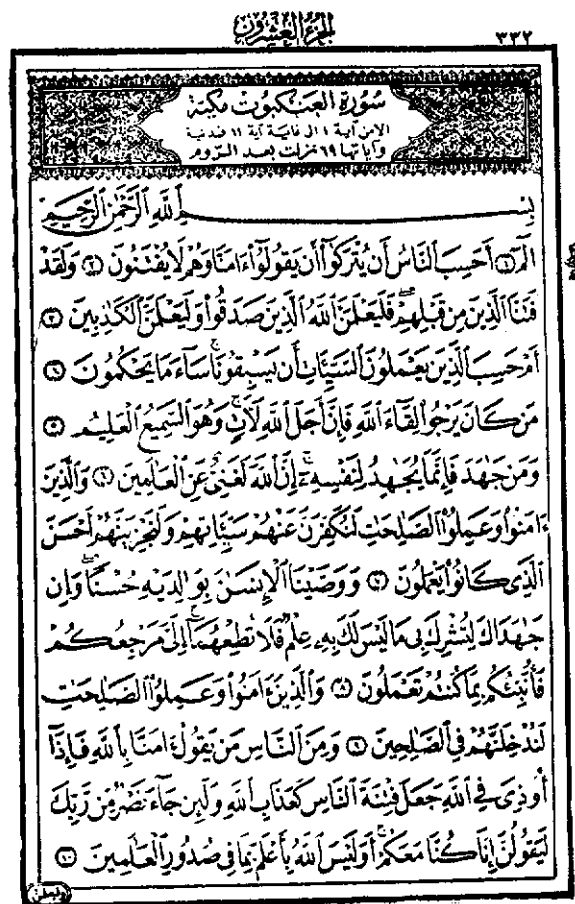 الجزء العشرون
٣٣٢
سورة العنكبوت مكية
الا من آية ١ الى غاية آية ١١ فمدنية
وآياتها ٦٩ نزلت بعد الروم
بِسْمِ ٱللَّهِ ٱلرَّحْمَٰنِ ٱلرَّحِيمِ
الٓمٓ ١ أَحَسِبَ ٱلنَّاسُ أَن يُتْرَكُوٓا۟ أَن يَقُولُوٓا۟ ءَامَنَّا وَهُمْ لَا يُفْتَنُونَ ٢ وَلَقَدْ
فَتَنَّا ٱلَّذِينَ مِن قَبْلِهِمْ ۖ فَلَيَعْلَمَنَّ ٱللَّهُ ٱلَّذِينَ صَدَقُوا۟ وَلَيَعْلَمَنَّ ٱلْكَٰذِبِينَ ٣
أَمْ حَسِبَ ٱلَّذِينَ يَعْمَلُونَ ٱلسَّيِّـَٔاتِ أَن يَسْبِقُونَا ۚ سَآءَ مَا يَحْكُمُونَ ٤
مَن كَانَ يَرْجُوا۟ لِقَآءَ ٱللَّهِ فَإِنَّ أَجَلَ ٱللَّهِ لَـَٔاتٍ ۚ وَهُوَ ٱلسَّمِيعُ ٱلْعَلِيمُ ٥
وَمَن جَٰهَدَ فَإِنَّمَا يُجَٰهِدُ لِنَفْسِهِۦٓ ۚ إِنَّ ٱللَّهَ لَغَنِىٌّ عَنِ ٱلْعَٰلَمِينَ ٦ وَٱلَّذِينَ
ءَامَنُوا۟ وَعَمِلُوا۟ ٱلصَّٰلِحَٰتِ لَنُكَفِّرَنَّ عَنْهُمْ سَيِّـَٔاتِهِمْ وَلَنَجْزِيَنَّهُمْ أَحْسَنَ
ٱلَّذِى كَانُوا۟ يَعْمَلُونَ ٧ وَوَصَّيْنَا ٱلْإِنسَٰنَ بِوَٰلِدَيْهِ حُسْنًا ۖ وَإِن
جَٰهَدَاكَ لِتُشْرِكَ بِى مَا لَيْسَ لَكَ بِهِۦ عِلْمٌ فَلَا تُطِعْهُمَآ ۚ إِلَىَّ مَرْجِعُكُمْ
فَأُنَبِّئُكُم بِمَا كُنتُمْ تَعْمَلُونَ ٨ وَٱلَّذِينَ ءَامَنُوا۟ وَعَمِلُوا۟ ٱلصَّٰلِحَٰتِ
لَنُدْخِلَنَّهُمْ فِى ٱلصَّٰلِحِينَ ٩ وَمِنَ ٱلنَّاسِ مَن يَقُولُ ءَامَنَّا بِٱللَّهِ فَإِذَآ
أُوذِىَ فِى ٱللَّهِ جَعَلَ فِتْنَةَ ٱلنَّاسِ كَعَذَابِ ٱللَّهِ وَلَئِن جَآءَ نَصْرٌ مِّن رَّبِّكَ
لَيَقُولُنَّ إِنَّا كُنَّا مَعَكُمْ ۚ أَوَلَيْسَ ٱللَّهُ بِأَعْلَمَ بِمَا فِى صُدُورِ ٱلْعَٰلَمِينَ ١٠
وليعلمن